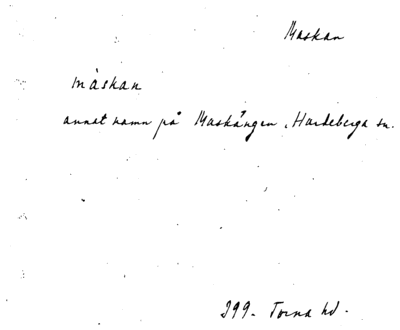 Maskan
måskan
annat namn på Maskängen, Hardeberga sn.
399. Torna hd.